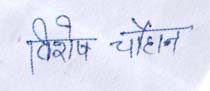 विशेष चौहान